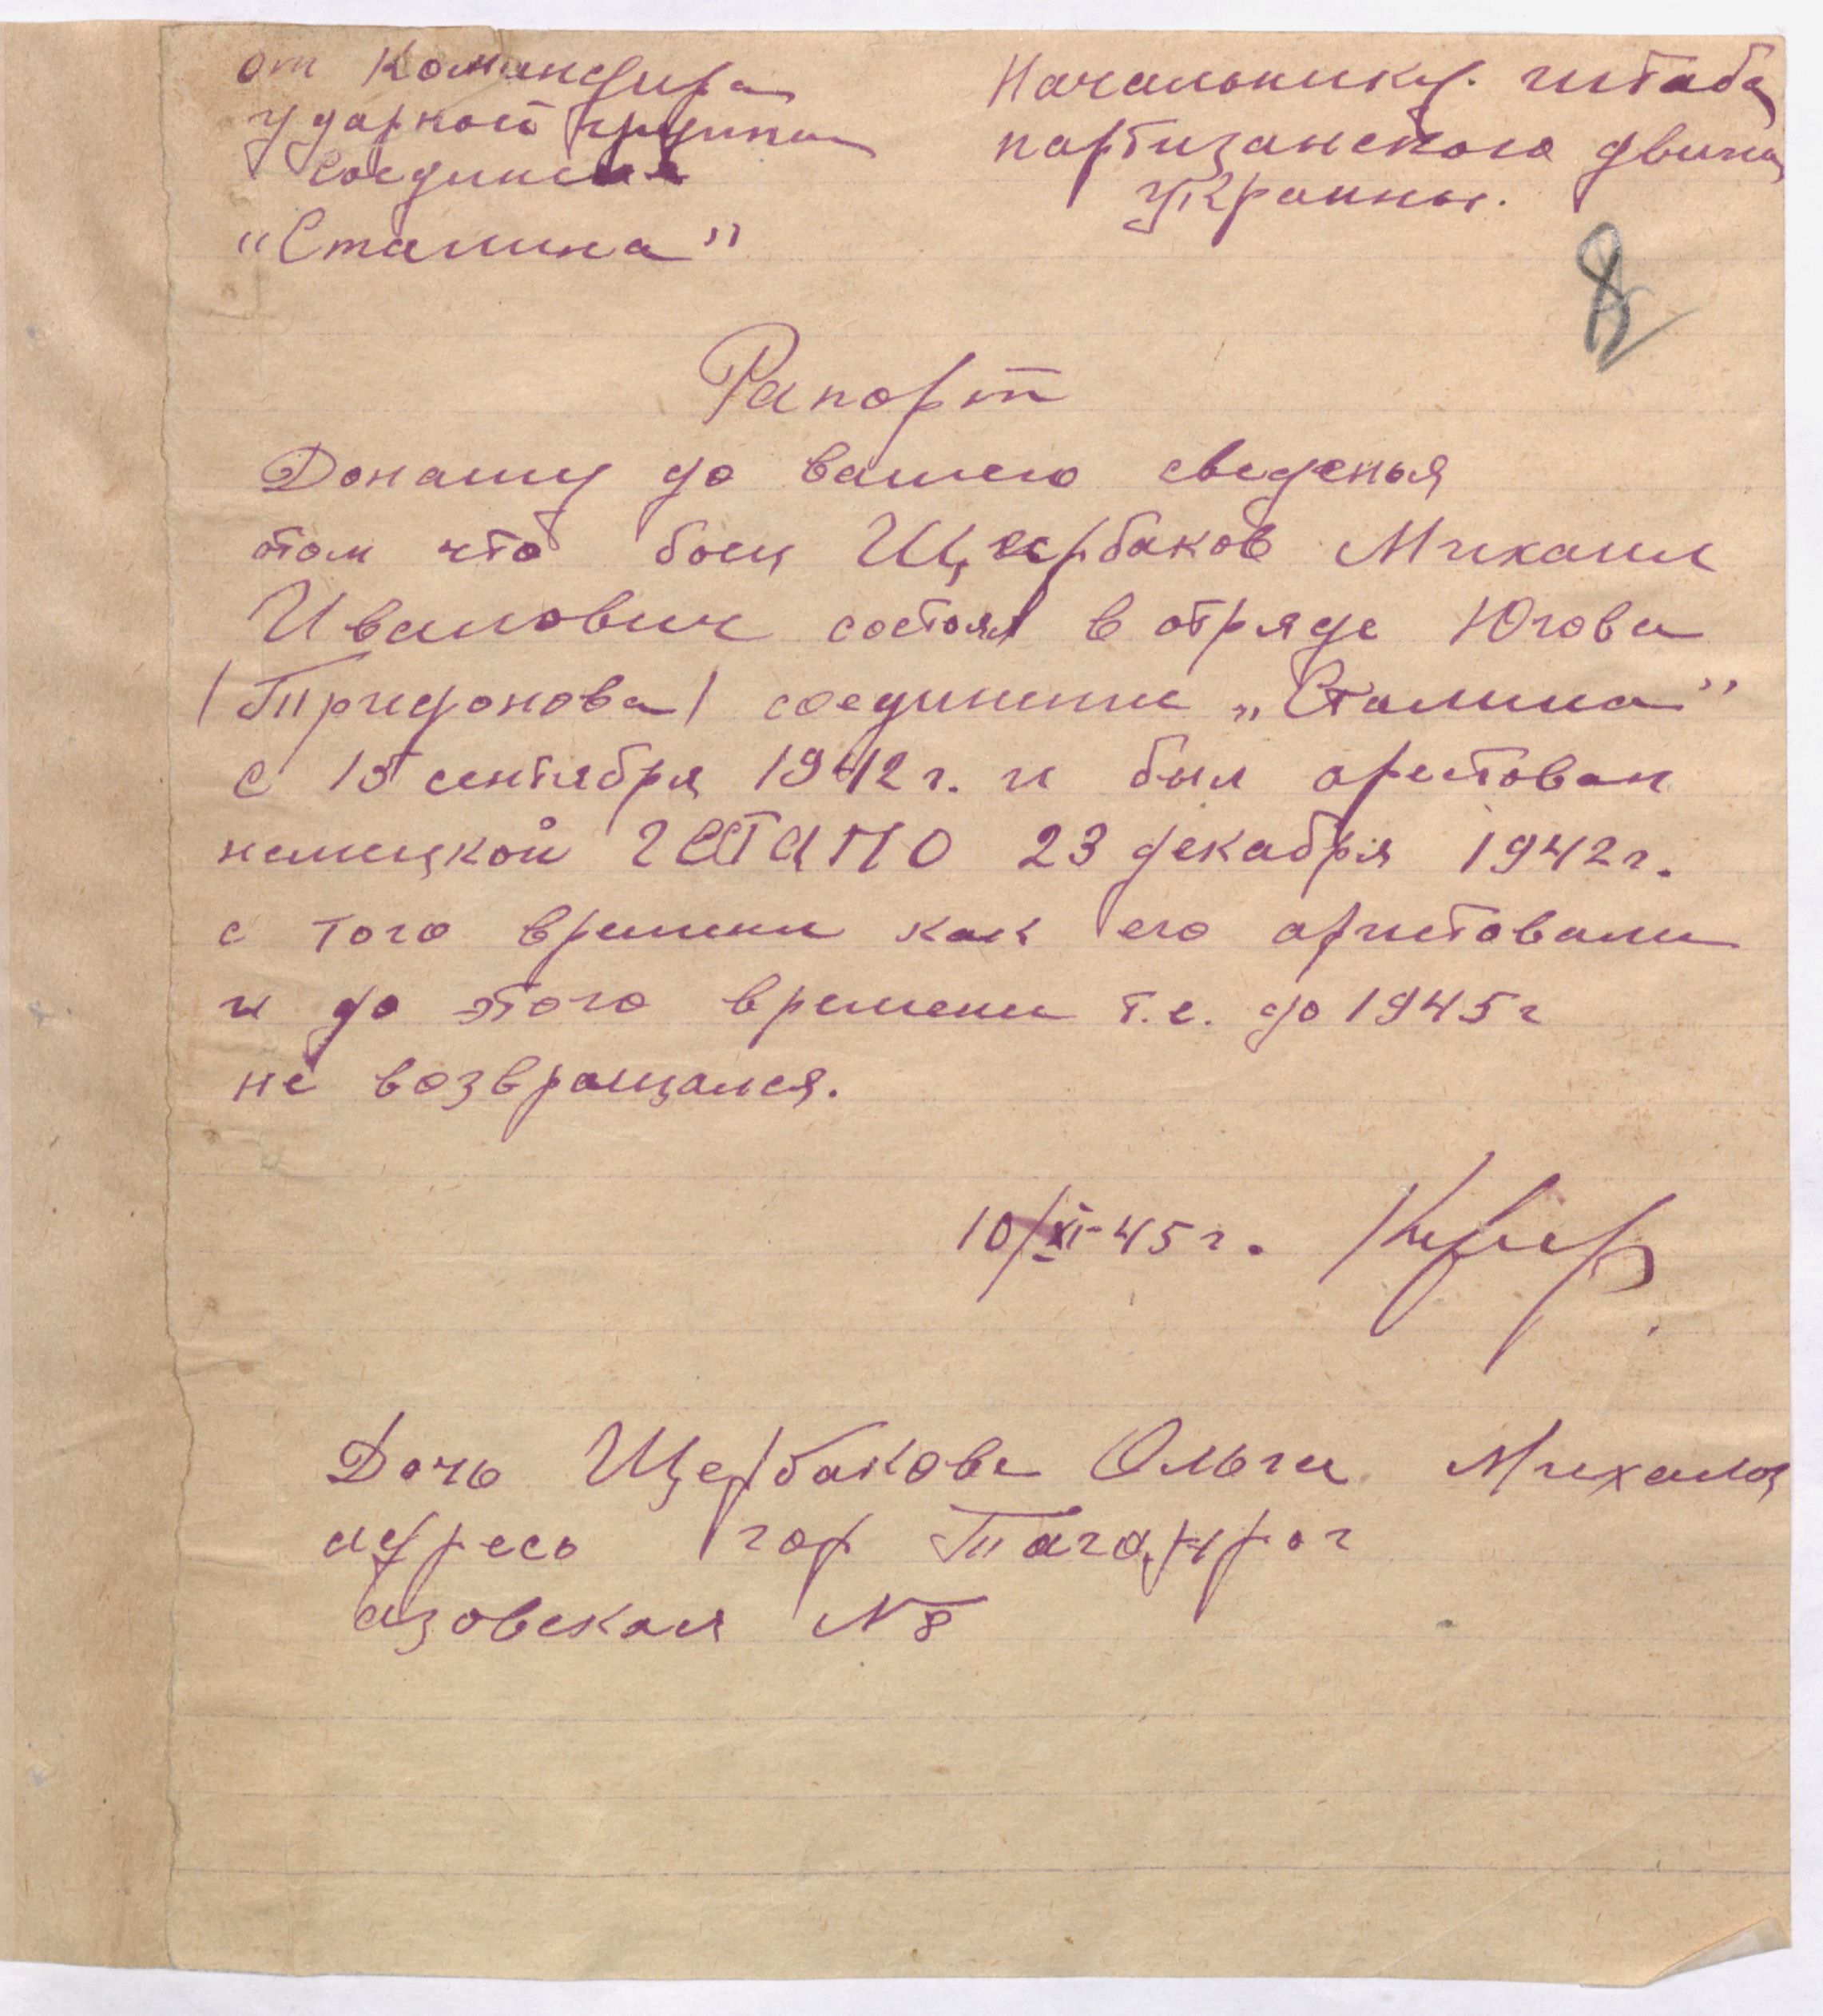 от Командира
ударной группы
соединения
"Сталина"
Начальнику. штаба
партизанского движ
Украины.
8
Рапорт
Донашу до вашего сведенья
отом что боец Щербаков Михаил
Иванович состоял в отряде Югова
/Трифонова/ соединения „Сталина"
с 15 сентября 1942 г. и был арестован
немецкой гестапо 23 декабря 1942 г.
с того времени как его аристовали
и до этого времени т.е. до 1945 г
не возвращался.
10/XI-45 г.
Дочь Щербакова Ольга Михайл
адресь гор Таганрог
азовская N 8